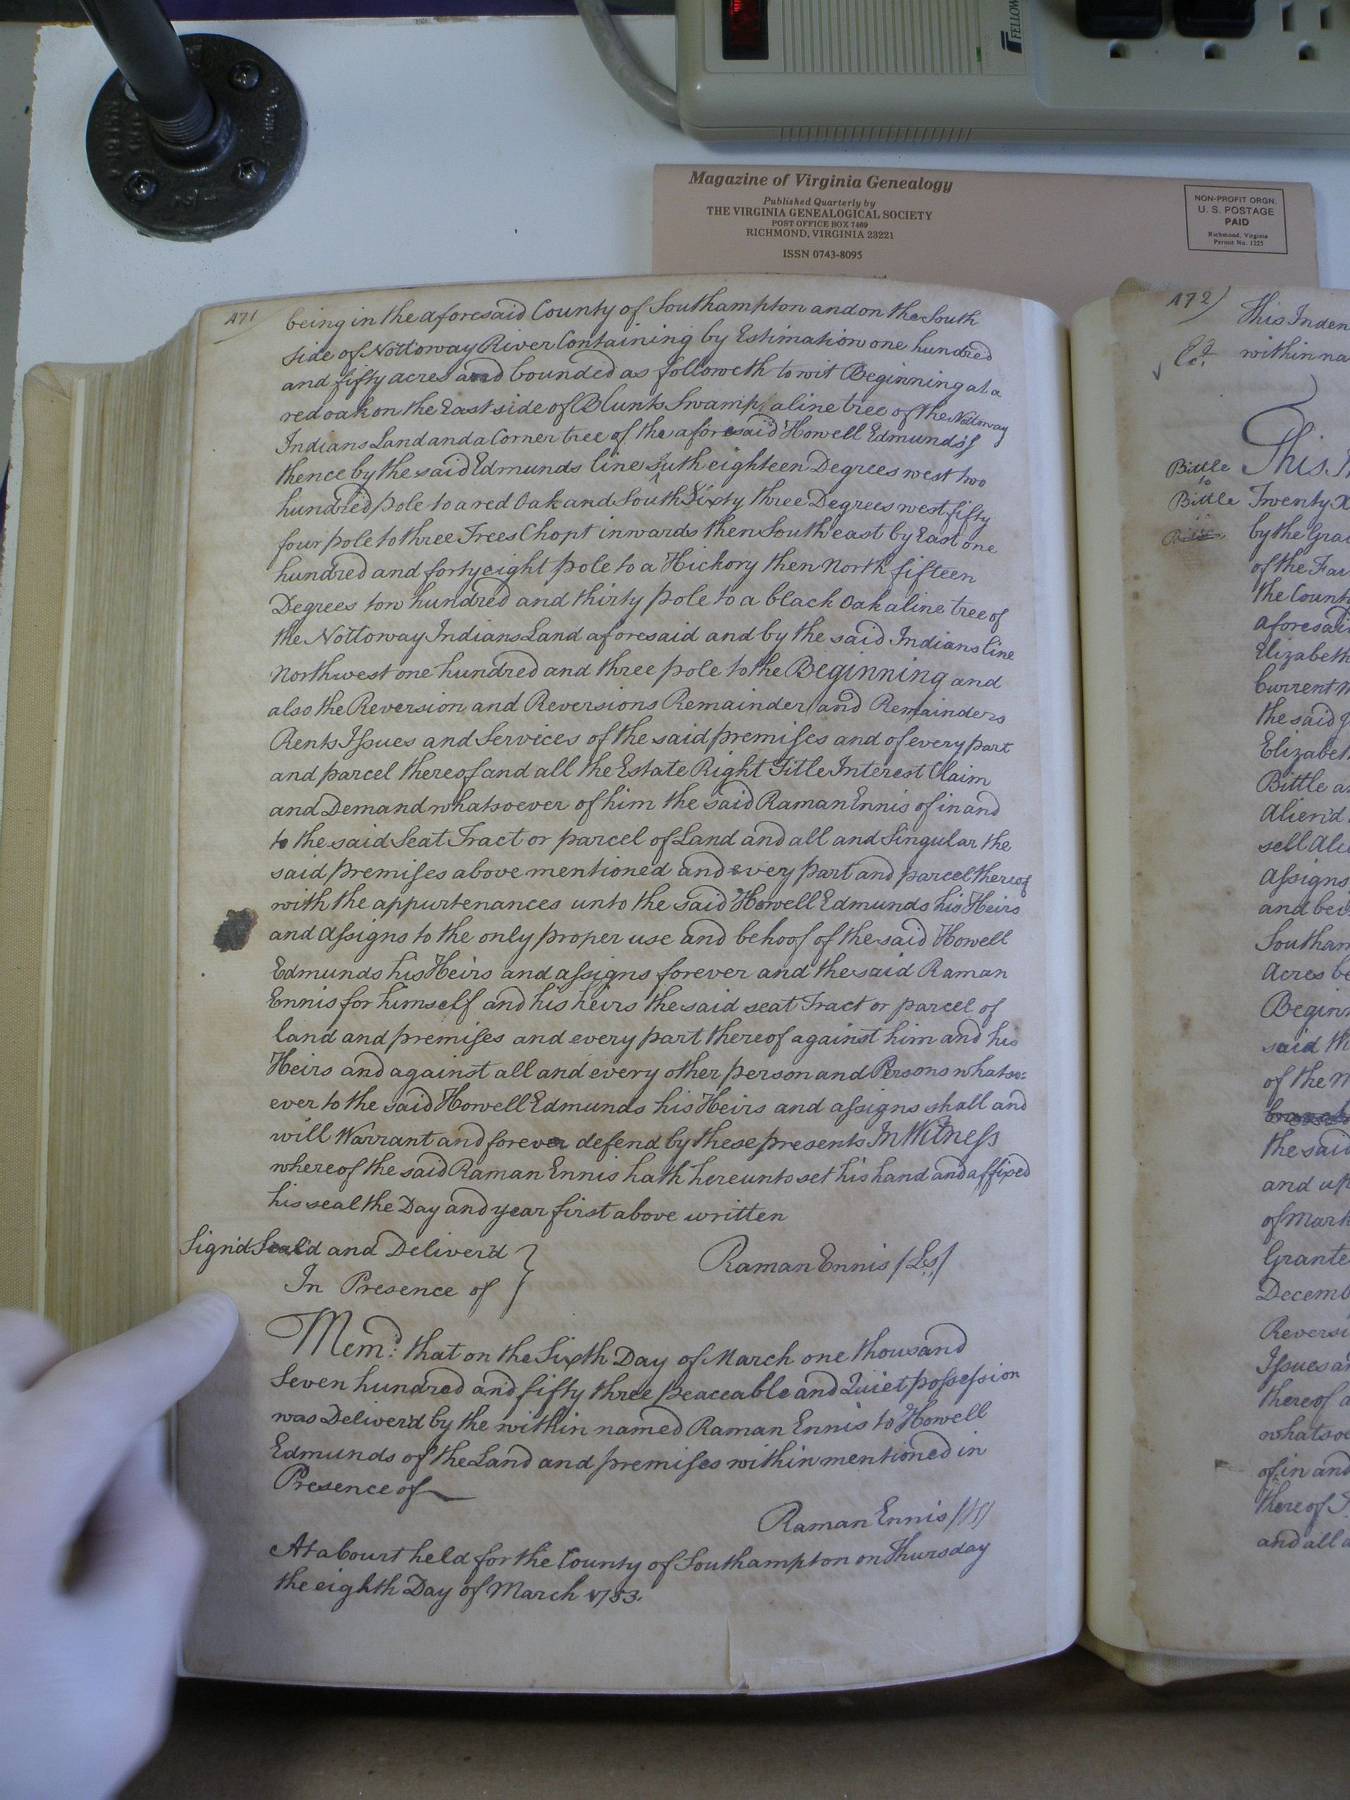 FELLOW
Magazine of Virginia Genealogy
Published Quarterly by
THE VIRGINIA GENEALOGICAL SOCIETY
POST OFFICE BOX 7469
RICHMOND, VIRGINIA 23221
ISSN 0743-8095
NON-PROFIT ORGN.
U. S. POSTAGE
PAID
Richmond, Virginia
Permit No. 1225
471
being in the aforesaid County of Southampton and on the South
side of Nottoway River Containing by Estimation one hundred
and fifty acres and bounded as followeth to wit Beginning at a
red oak on the East side of Blunts Swamp, a line tree of the Nottoway
Indians Land and a Corner tree of the aforesaid Howell Edmunds's
thence by the said Edmunds line Suth eighteen Degrees west two
hundred pole to a red Oak and South Sixty three Degrees west fifty
four pole to three Trees Chopt inwards then South east by East one
hundred and forty eight pole to a Hickory then North fifteen
Degrees tow hundred and thirty pole to a black Oak a line tree of
the Nottoway Indians Land aforesaid and by the said Indians line
Northwest one hundred and three pole to the Beginning and
also the Reversion and Reversions Remainder and Remainders
Rents Issues and Services of the said premises and of every part
and parcel thereof and all the Estate Right Title Interest Claim
and Demand whatsoever of him the said Raman Ennis of in and
to the said Seat Tract or parcel of Land and all and Singular the
said premises above mentioned and every part and parcel thereof
with the appurtenances unto the said Howell Edmunds his Heirs
and assigns to the only proper use and behoof of the said Howell
Edmunds his Heirs and assigns forever and the said Raman
Ennis for himself and his heirs the said seat Tract or parcel of
land and premises and every part thereof against him and his
Heirs and against all and every other person and Persons whatso:
ever to the said Howell Edmunds his Heirs and assigns shall and
will Warrant and forever defend by these presents In Witness
whereof the said Raman Ennis hath hereunto set his hand and affixed
his seal the Day and year first above written
Sign'd Seal'd and Deliver'd
In Presence of
Raman Ennis (Ls)
Memd: that on the Sixth Day of March one thousand
Seven hundred and fifty three peaceable and Quiet possession
was Deliver'd by the within named Raman Ennis to Howell
Edmunds of the Land and premises within mentioned in
Presence of
Raman Ennis
At a Court held for the County of Southampton on Thursday
the eighth Day of March 1753.
472
This Inden
within na
This
Bittle
to
Bittle
Twenty
by the Gra
of the
the Count
aforesai
Elizabeth
Current
the said
Elizabet
Bittle a
Alien'd
sell Ali
Assigns
and be
Southam
Acres be
Beginn
said th
of the
the said
and up
of Mar
Grante
Decemb
Reversi
Issues a
thereof a
whatsoe
of in and
thereof
and all